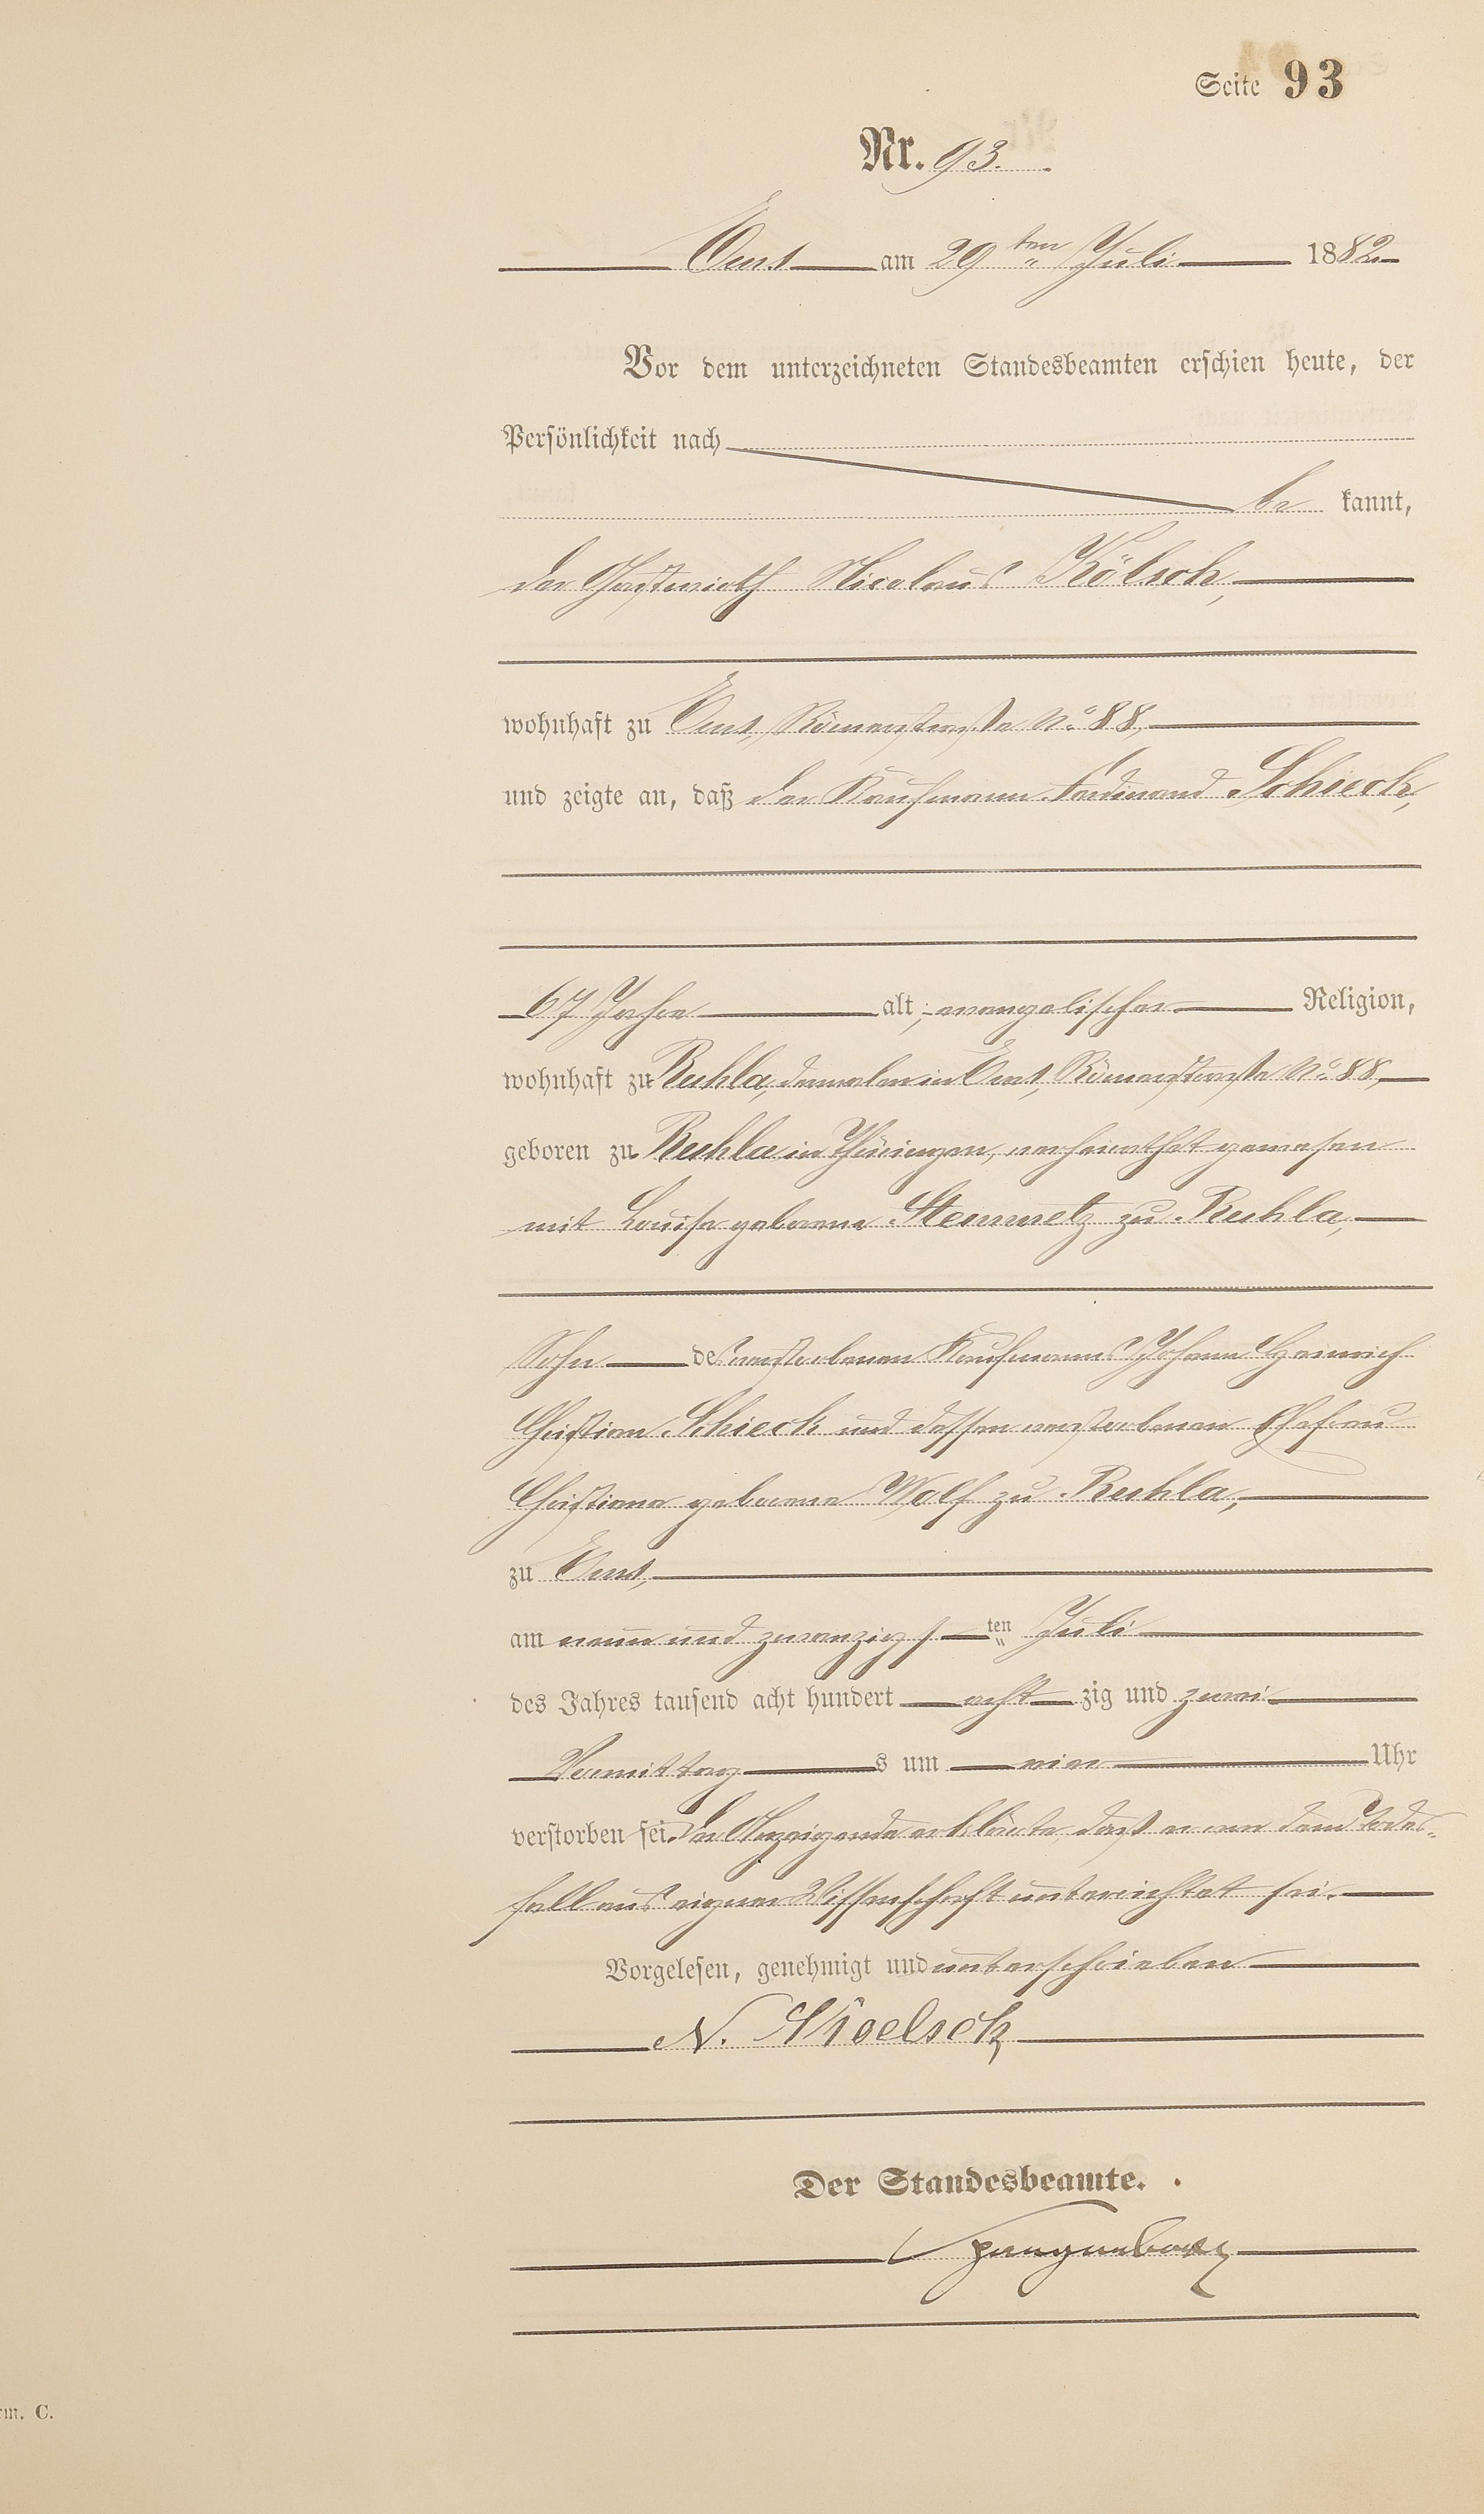 Seite 93
Nr. 93.
Ems am 29 ten Juli 1882
Vor dem unterzeichneten Standesbeamten erschien heute, der
Persönlichkeit nach
be kannt,
der Gastwirth Nicolaus Kölsch,
wohnhaft zu Ems, Römerstraße No. 88,
und zeigte an, daß der Kaufmann Ferdinand Schieck,
67 Jahre alt, evangelischer Religion,
wohnhaft zu Ruhla, dermalen in Ems, Römerstraße No. 88,
geboren zu Ruhla in Thüringen, verheirathet gewesen
mit Louise geborene Steinmetz zu Ruhla,
Sohn des verstorbenen Kaufmanns Johann Heinrich
Christian Schieck und dessen verstorbenen Ehefrau
Christiane geborene Wolf zu Ruhla,
zu Ems,
am neun und zwanzigs ten Juli
des Jahres tausend acht hundert acht zig und zwei
Vormittag s um vier Uhr
verstorben sei. Der Anzeigende erklärte, daß er von dem Todes-
fall aus eigner Wissenschaft unterrichtet sei.
Vorgelesen, genehmigt und unterschrieben
N. Koelsch
Der Standesbeamte.
Spangenberg
rm. C.